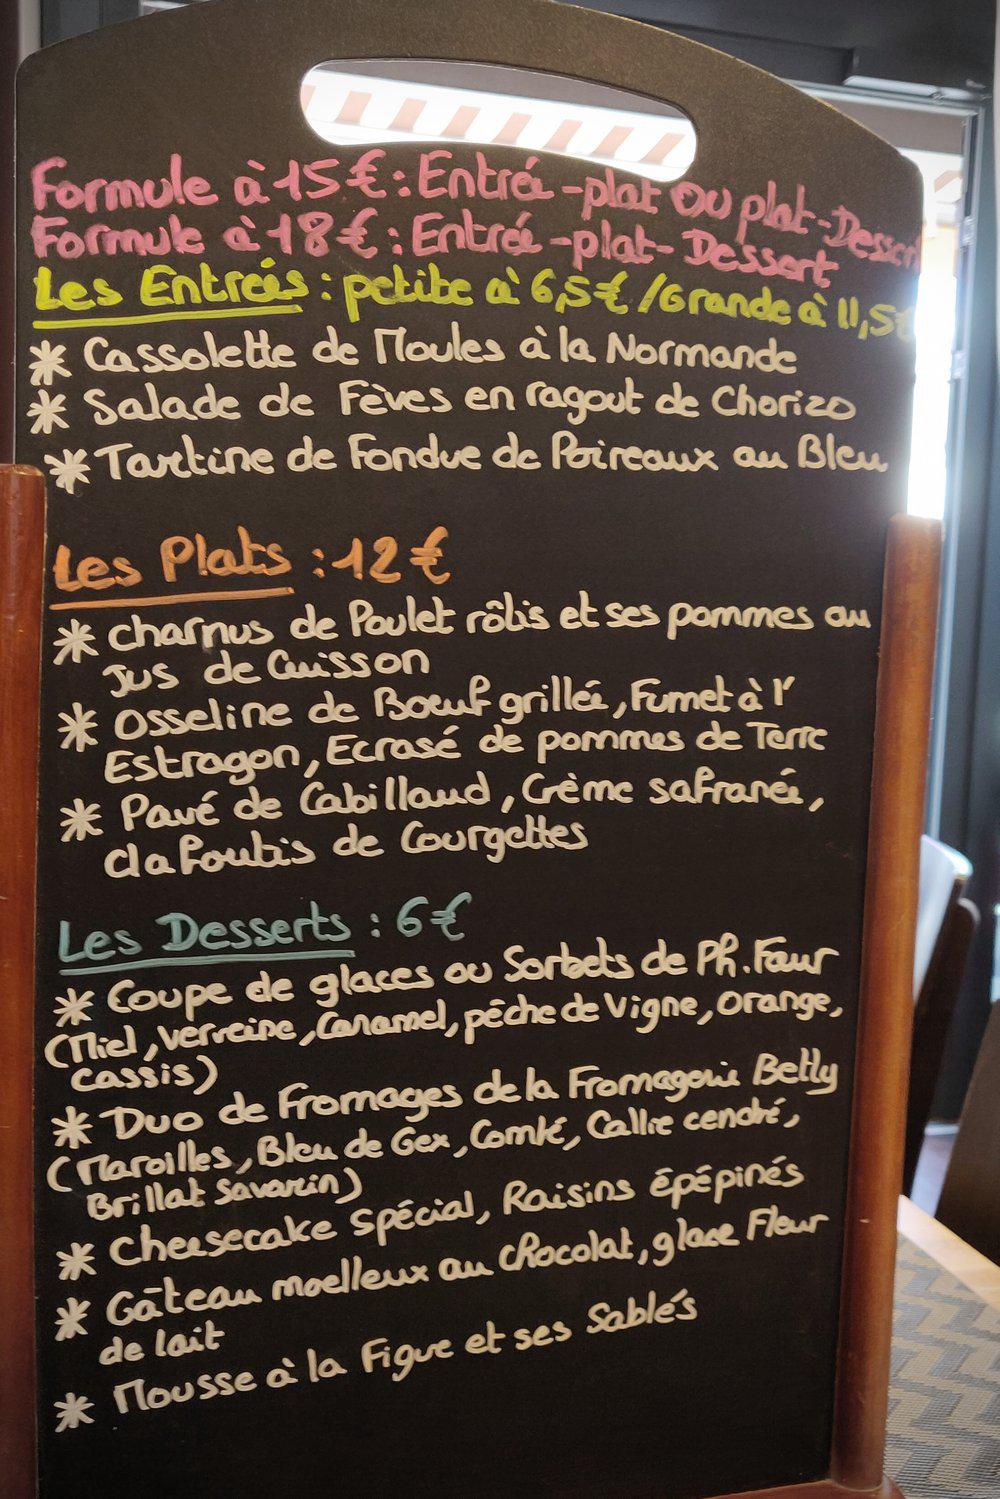 Formule à 15€ : Entrée - plat OU plat - Dessert
Formule à 18€ : Entrée - plat - Dessert
Les Entrées : petite à 6,5€ / Grande à 11,5€
* Cassolette de Moules à la Normande
* Salade de Fèves en ragout de Chorizo
* Tartine de Fondue de Poireaux au Bleu
Les Plats : 12€
* charnus de Poulet rôtis et ses pommes au
jus de Cuisson
* Osseline de Bœuf grillée, Fumet à l'
Estragon, Ecrasé de pommes de Terre
* Pavé de Cabillaud, Crème safranée,
clafoutis de Courgettes
Les Desserts : 6€
* Coupe de glaces ou Sorbets de Ph. Faur
(Miel, verveine, Caramel, pêche de Vigne, Orange,
cassis)
* Duo de Fromages de la Fromagerie Betty
(Maroilles, Bleu de Gex, Comté, Callie cendré,
Brillat Savarin)
* Cheesecake Spécial, Raisins épépinés
* Gâteau moelleux au chocolat, glace Fleur
de lait
* Mousse à la Figue et ses Sablés